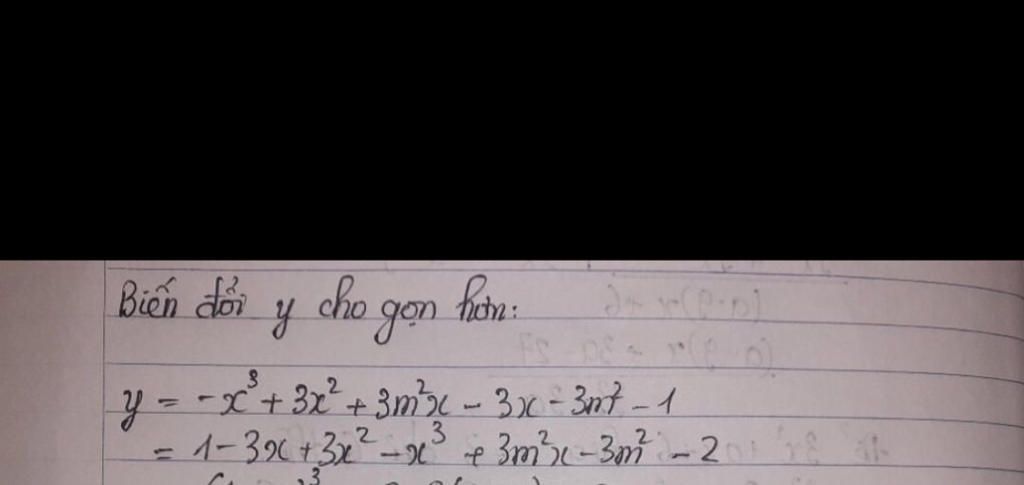 Biến đổi y cho gọn hơn:
y = -x³ + 3x² + 3m²x - 3x - 3m² - 1
= 1 - 3x + 3x² - x³ + 3m²x - 3m² - 2